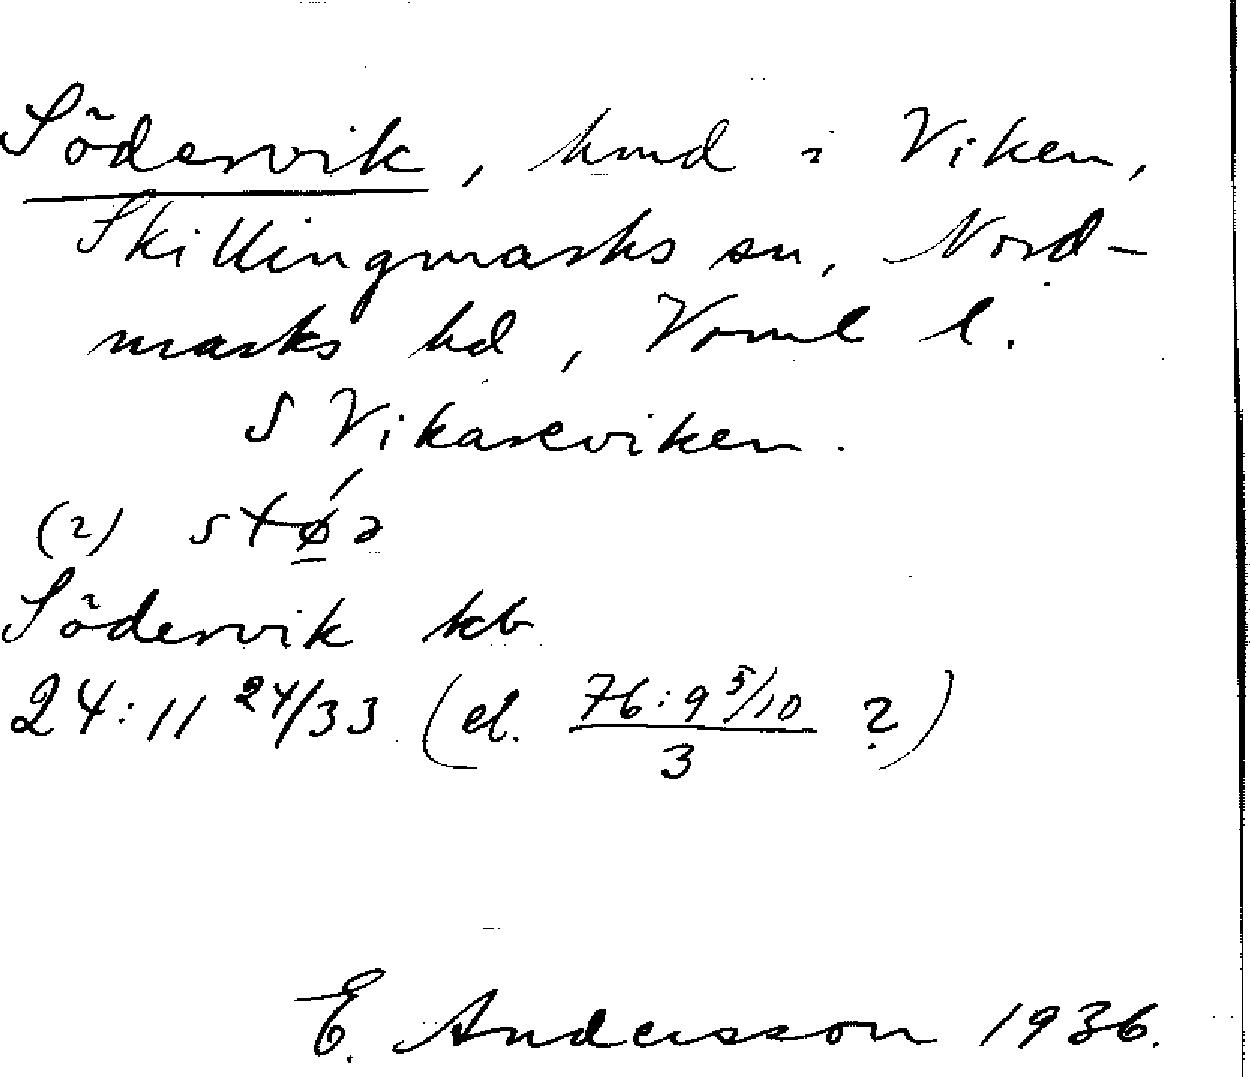 Södervik, hmd i Viken,
Skillingmarks sn, Nord-
marks hd, Värml l.
S Vikareviken.
(2) støə
Södervik kb
24:11 24/33 (el. 76:9 5/10 / 3 ?)
E. Andersson 1936.